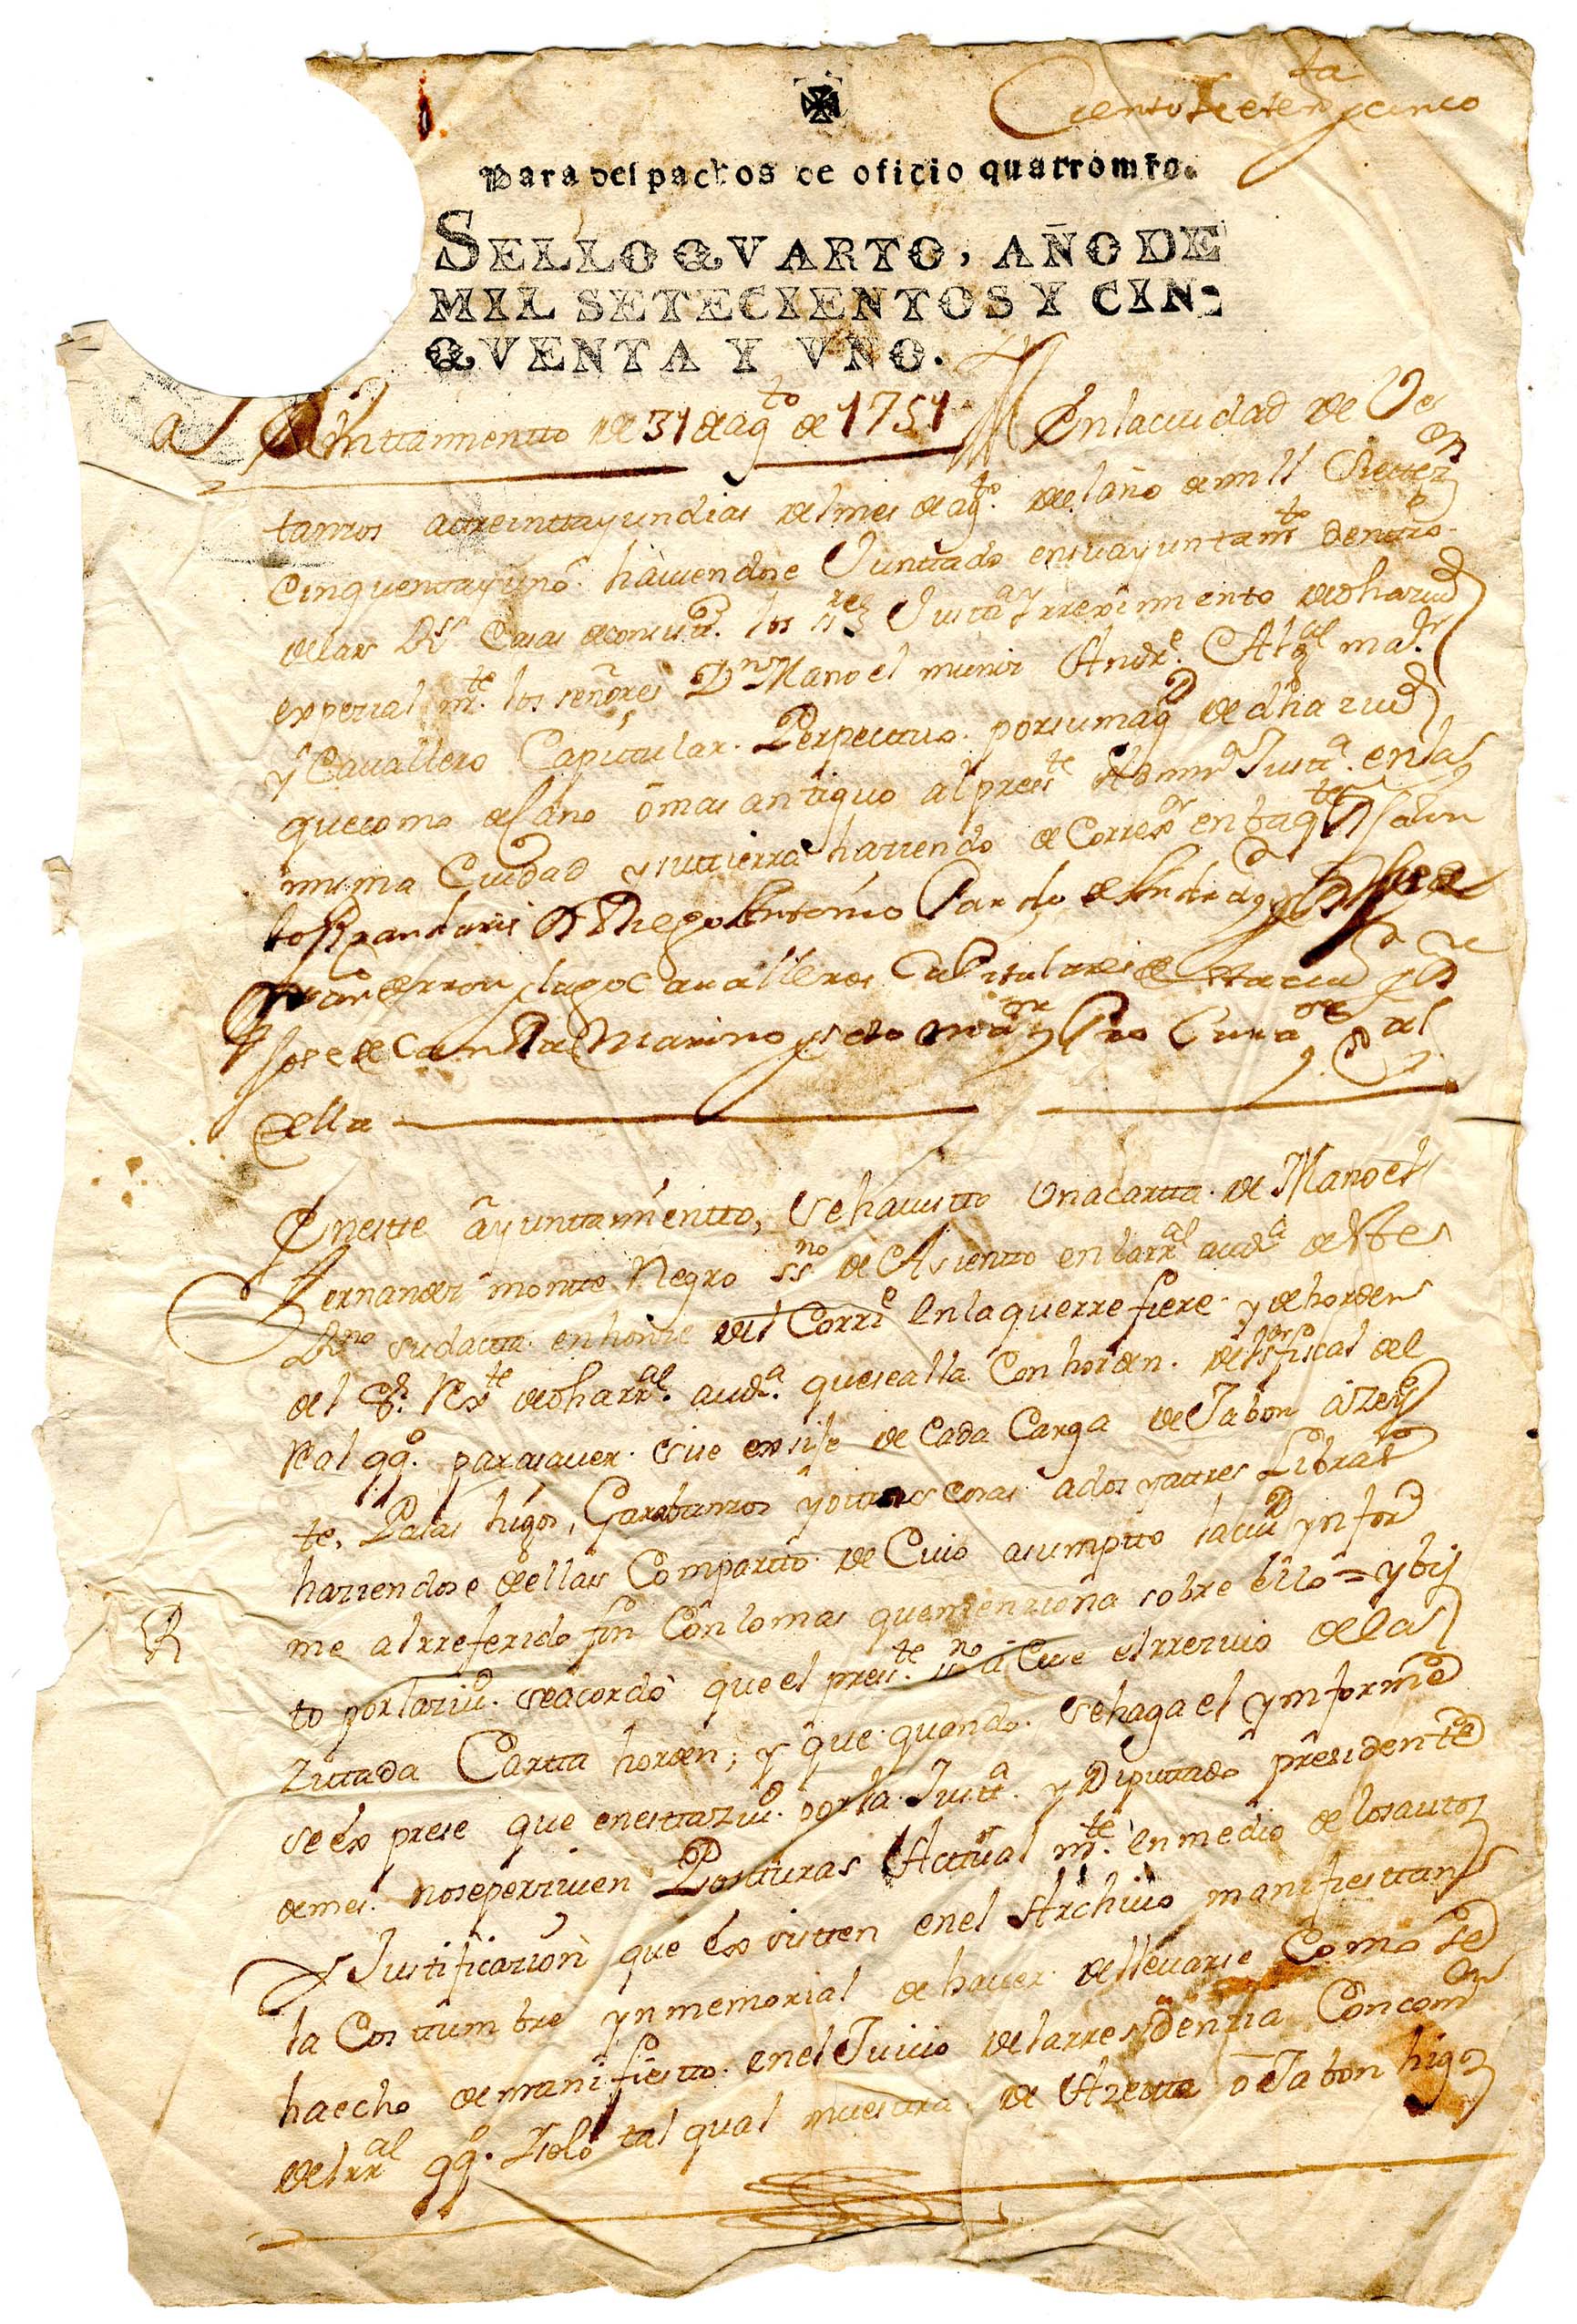 ta
Ciento Seten y cinco
Para despachos de oficio quatro mrs.
SELLO QVARTO, AÑO DE
MIL SETECIENTOS Y CIN-
QVENTA Y VNO.
Ayunttamientto de 31 de agto de 1751 En la ciudad de Ve
tanzos a ttreintta y un dias del mes de agto. del año de mill Settez
cinquentta y uno. haviendose Junttado en su ayuntamto denttro
de las Rs. Casas de consistto. los sres Justta y rreximiento de dha ziud
expezial mte. los señores Dn Manoel munir Andre. Alg ma
y Cavallero Capitular. Perpettuo. por su magd de dha ziud
que como de ano o mas antiguo al preste Admn Justta. en las
misma Ciudad y su ttierra haziendo de Correxor en
Dn Diego Antonio Pardo de Andrade y Dn
y lago Cavalleros Capitulares de esta ciud y Dn
Jose de Marino y Procuraor Gral
de ella
En estte ayunttamientto, Se ha visto Una cartta de Manoel
Fernandez montte Negro ssno de Asientto en la rral auda de este
Rno su datta en honze del Corrte En la que rrefiere y de horden
del Sr. Rexte de dha rral. auda. que se alla Con horden. del sr fiscal del
Real qqo. para saver. si se exsije de Cada Carga de Jabon azey
te, Pasas higos, Garbanzos y ottras cosas a dos y a ttres Libras
haziendose de ellas Compartto de Cuio asumptto la ciud ynfor
me al rreferido fin Con lo mas que menziona sobre ello = y bis
R
to por la ziud. se acordo que el preste. sno acuse el rrezivo de las
zittada Cartta horden; y que quando. se haga el ynforme
se exprese que en estta ziud. por la Justta. y Diputtado presidente
de mes. no se perziven Posturas Acttual mte. en medio de los autos
y Justificazion que exsistten en el Archivo manifiesttan
la Costtumbre ynmemorial de haver de llevarse Como se
ha echo de manifiestto. en el Juicio de la rresidenzia Con com
del rral qqo. y solo tal qual muestra de Azeitte o Jabon higos